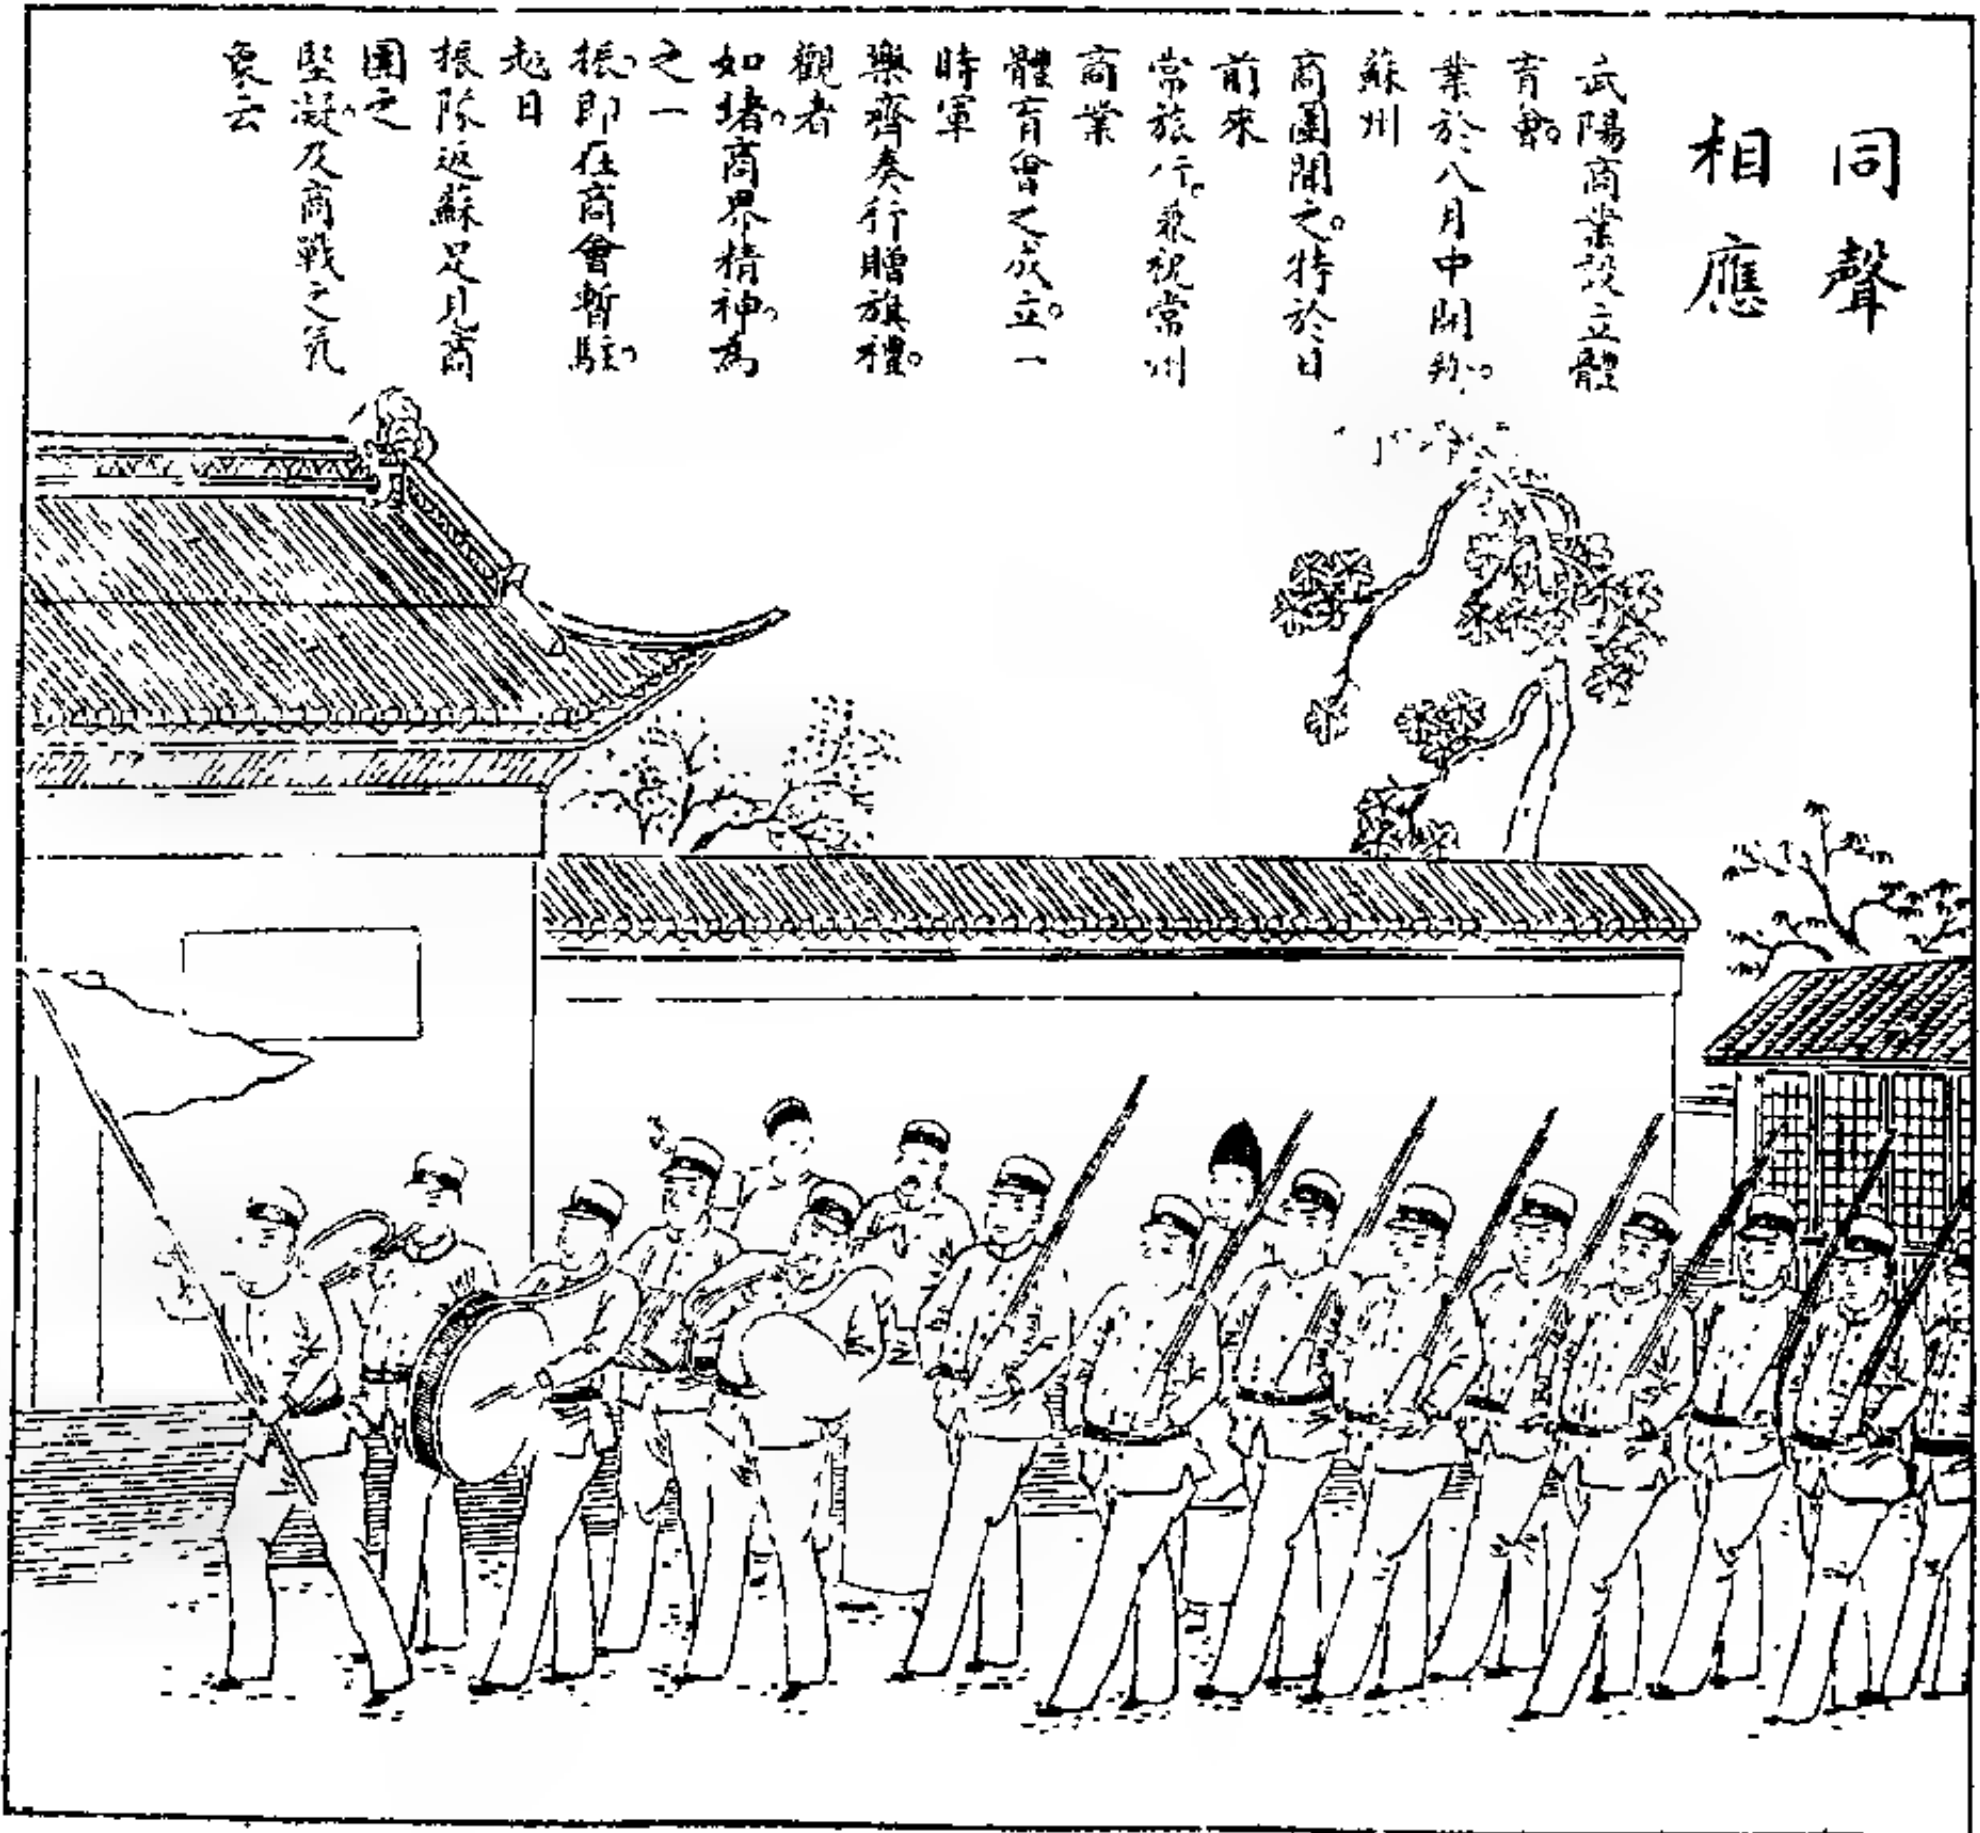 同聲
相應
武陽商業設立體
育會。
業於八月中開
蘇州
商團聞之。特於日
前來
常旅行。兼祝常州
商業
體育會之成立。一
時軍
樂齊奏行贈旗禮。
觀者
如堵。商界精神。為
之一
振。即在商會暫駐。
越日
振隊返蘇足見商
團之
堅凝。及商戰之氣
象云